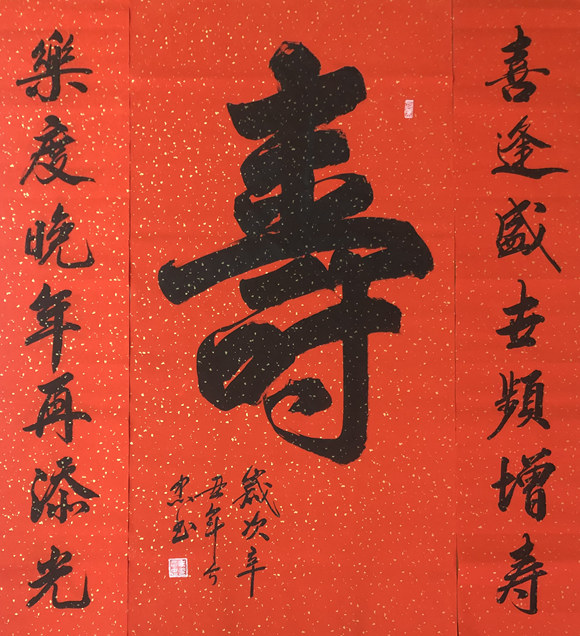 喜逢盛世頻增寿
壽
歲次辛
丑年
忠书
樂度晚年再添光